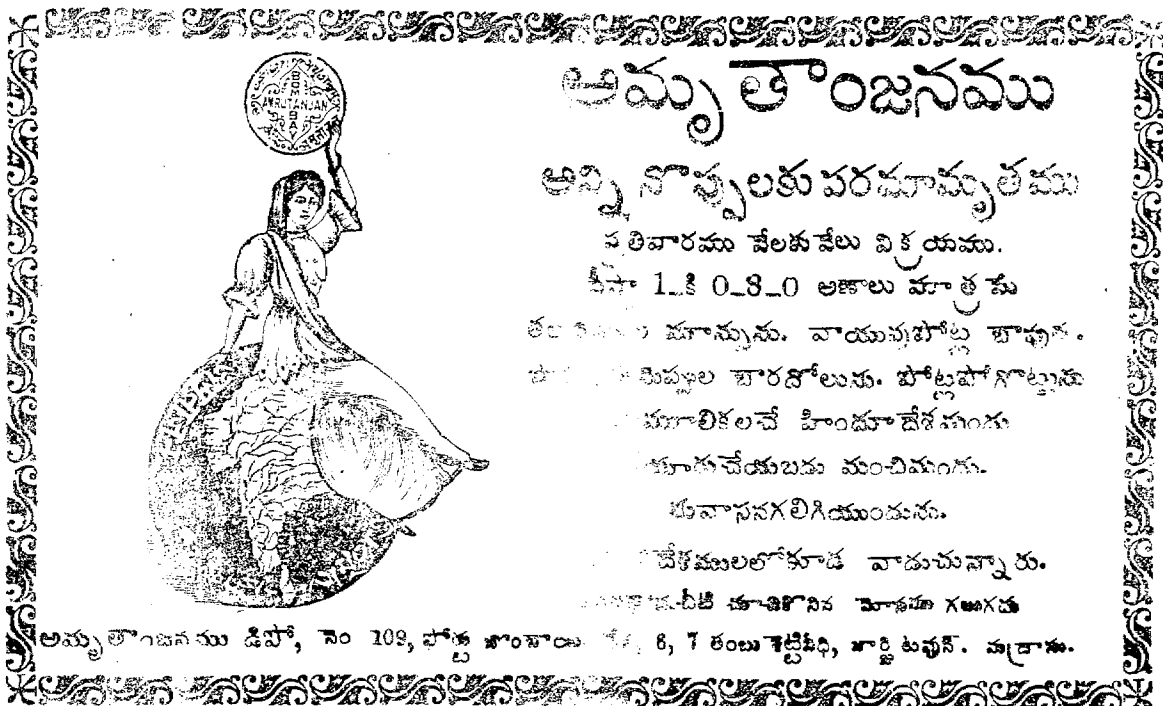 BOMBAY
AMRUTANJAN
అమృతాంజనము
అన్ని నొప్పులకు పరమామృతము
ప్రతివారము వేలకువేలు విక్రయము.
సీసా 1_కి 0_8_0 అణాలు మాత్రమే
మాన్పును. వాయువుపోట్ల బాపును.
పారదోలును. పోట్లపోగొట్టును
మూలికలచే హిందూదేశమందు
చేయబడు మంచిమందు.
సువాసనగలిగియుండును.
దేశములలోకూడ వాడుచున్నారు.
చూచికొనిన మోసము గలుగదు
అమృతాంజనము డిపో, నెం 109, పోస్టు బొంబాయి 6, 7 తంబుశెట్టివీధి, జార్జి టవున్. మద్రాసు.